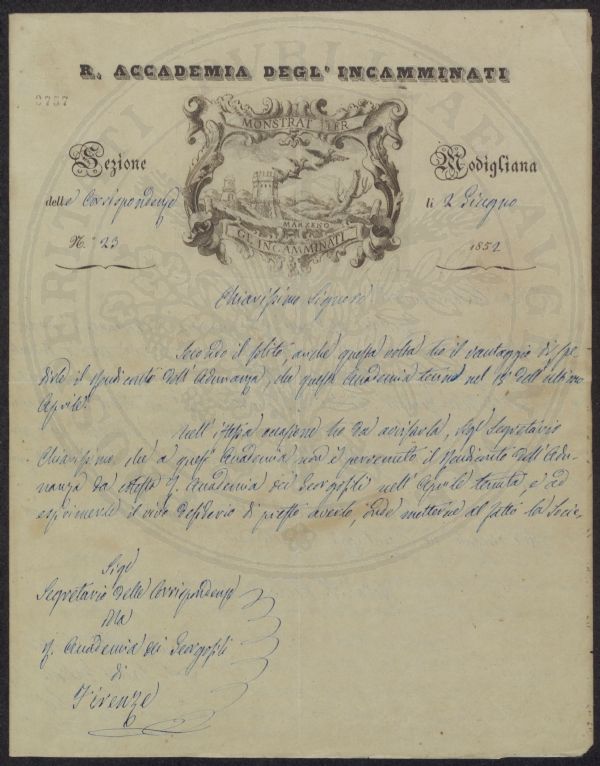 R. ACCADEMIA DEGL' INCAMMINATI
MONSTRAT ITER
MARZENO
GL' INCAMMINATI
Sezione
della Corrispondenza
N.° 23
Modigliana
li 2 Giugno
1852
Chiarissimo Signore
Secondo il solito, anche questa volta ho il vantaggio di spe-
dirle il Rendiconto dell'Adunanza, che questa Accademia tenne nel 18 dell'ultimo
Aprile.
Nell'istessa occasione ho da avvisarla, Sigr Segretario
Chiarissimo, che a quest'Accademia non è pervenuto il Rendiconto dell'Adu-
nanza da codesta I. Accademia dei Georgofili nell'Aprile tenuta, e ad
esprimerle il vivo desiderio di presto averlo, onde metterne al fatto la Socie-
Sigr
Segretario della Corrispondenza
della
I. Accademia dei Georgofili
di
Firenze